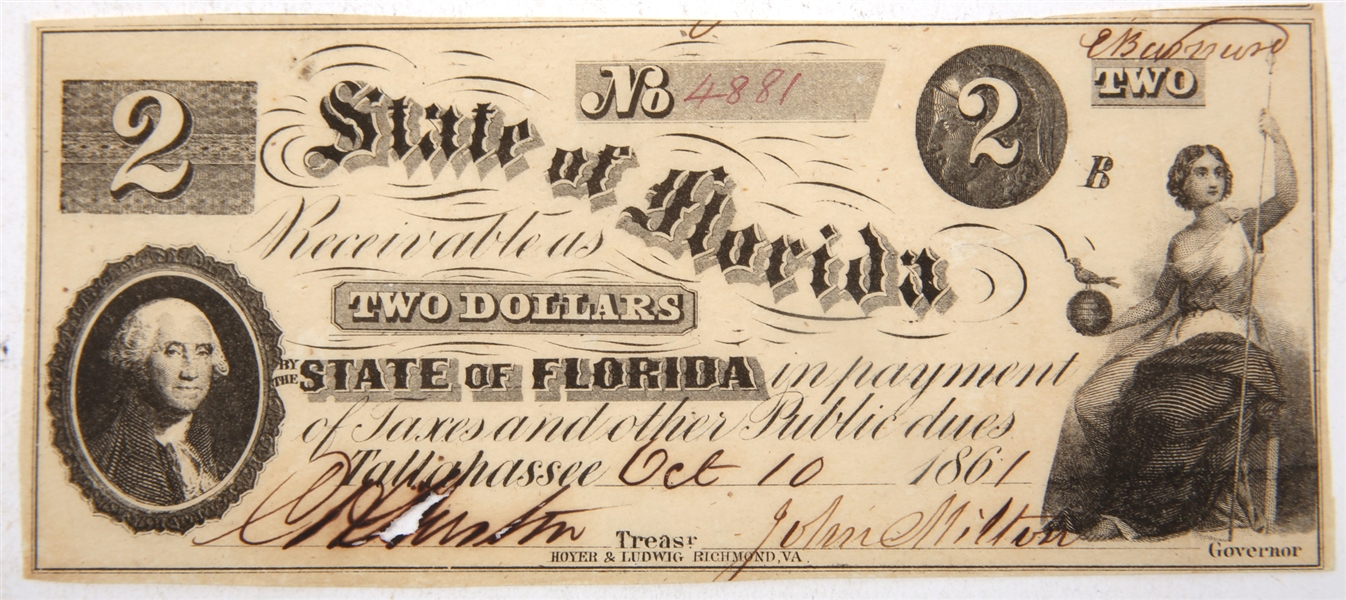 2
No 4881
2
TWO
B
State of Florida
Receivable as
TWO DOLLARS
BY THE STATE OF FLORIDA in payment
of Taxes and other Public dues
Tallahassee Oct 10 1861
John Milton
Treasr
Governor
HOYER & LUDWIG RICHMOND, VA.